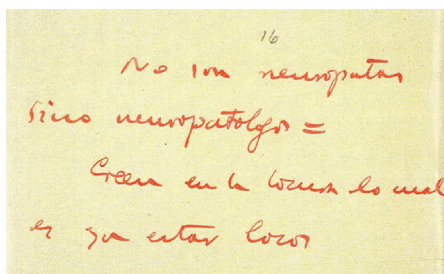 16
No son neuropatas
sino neuropatologos =
Creen en la locura lo cual
es ya estar locos